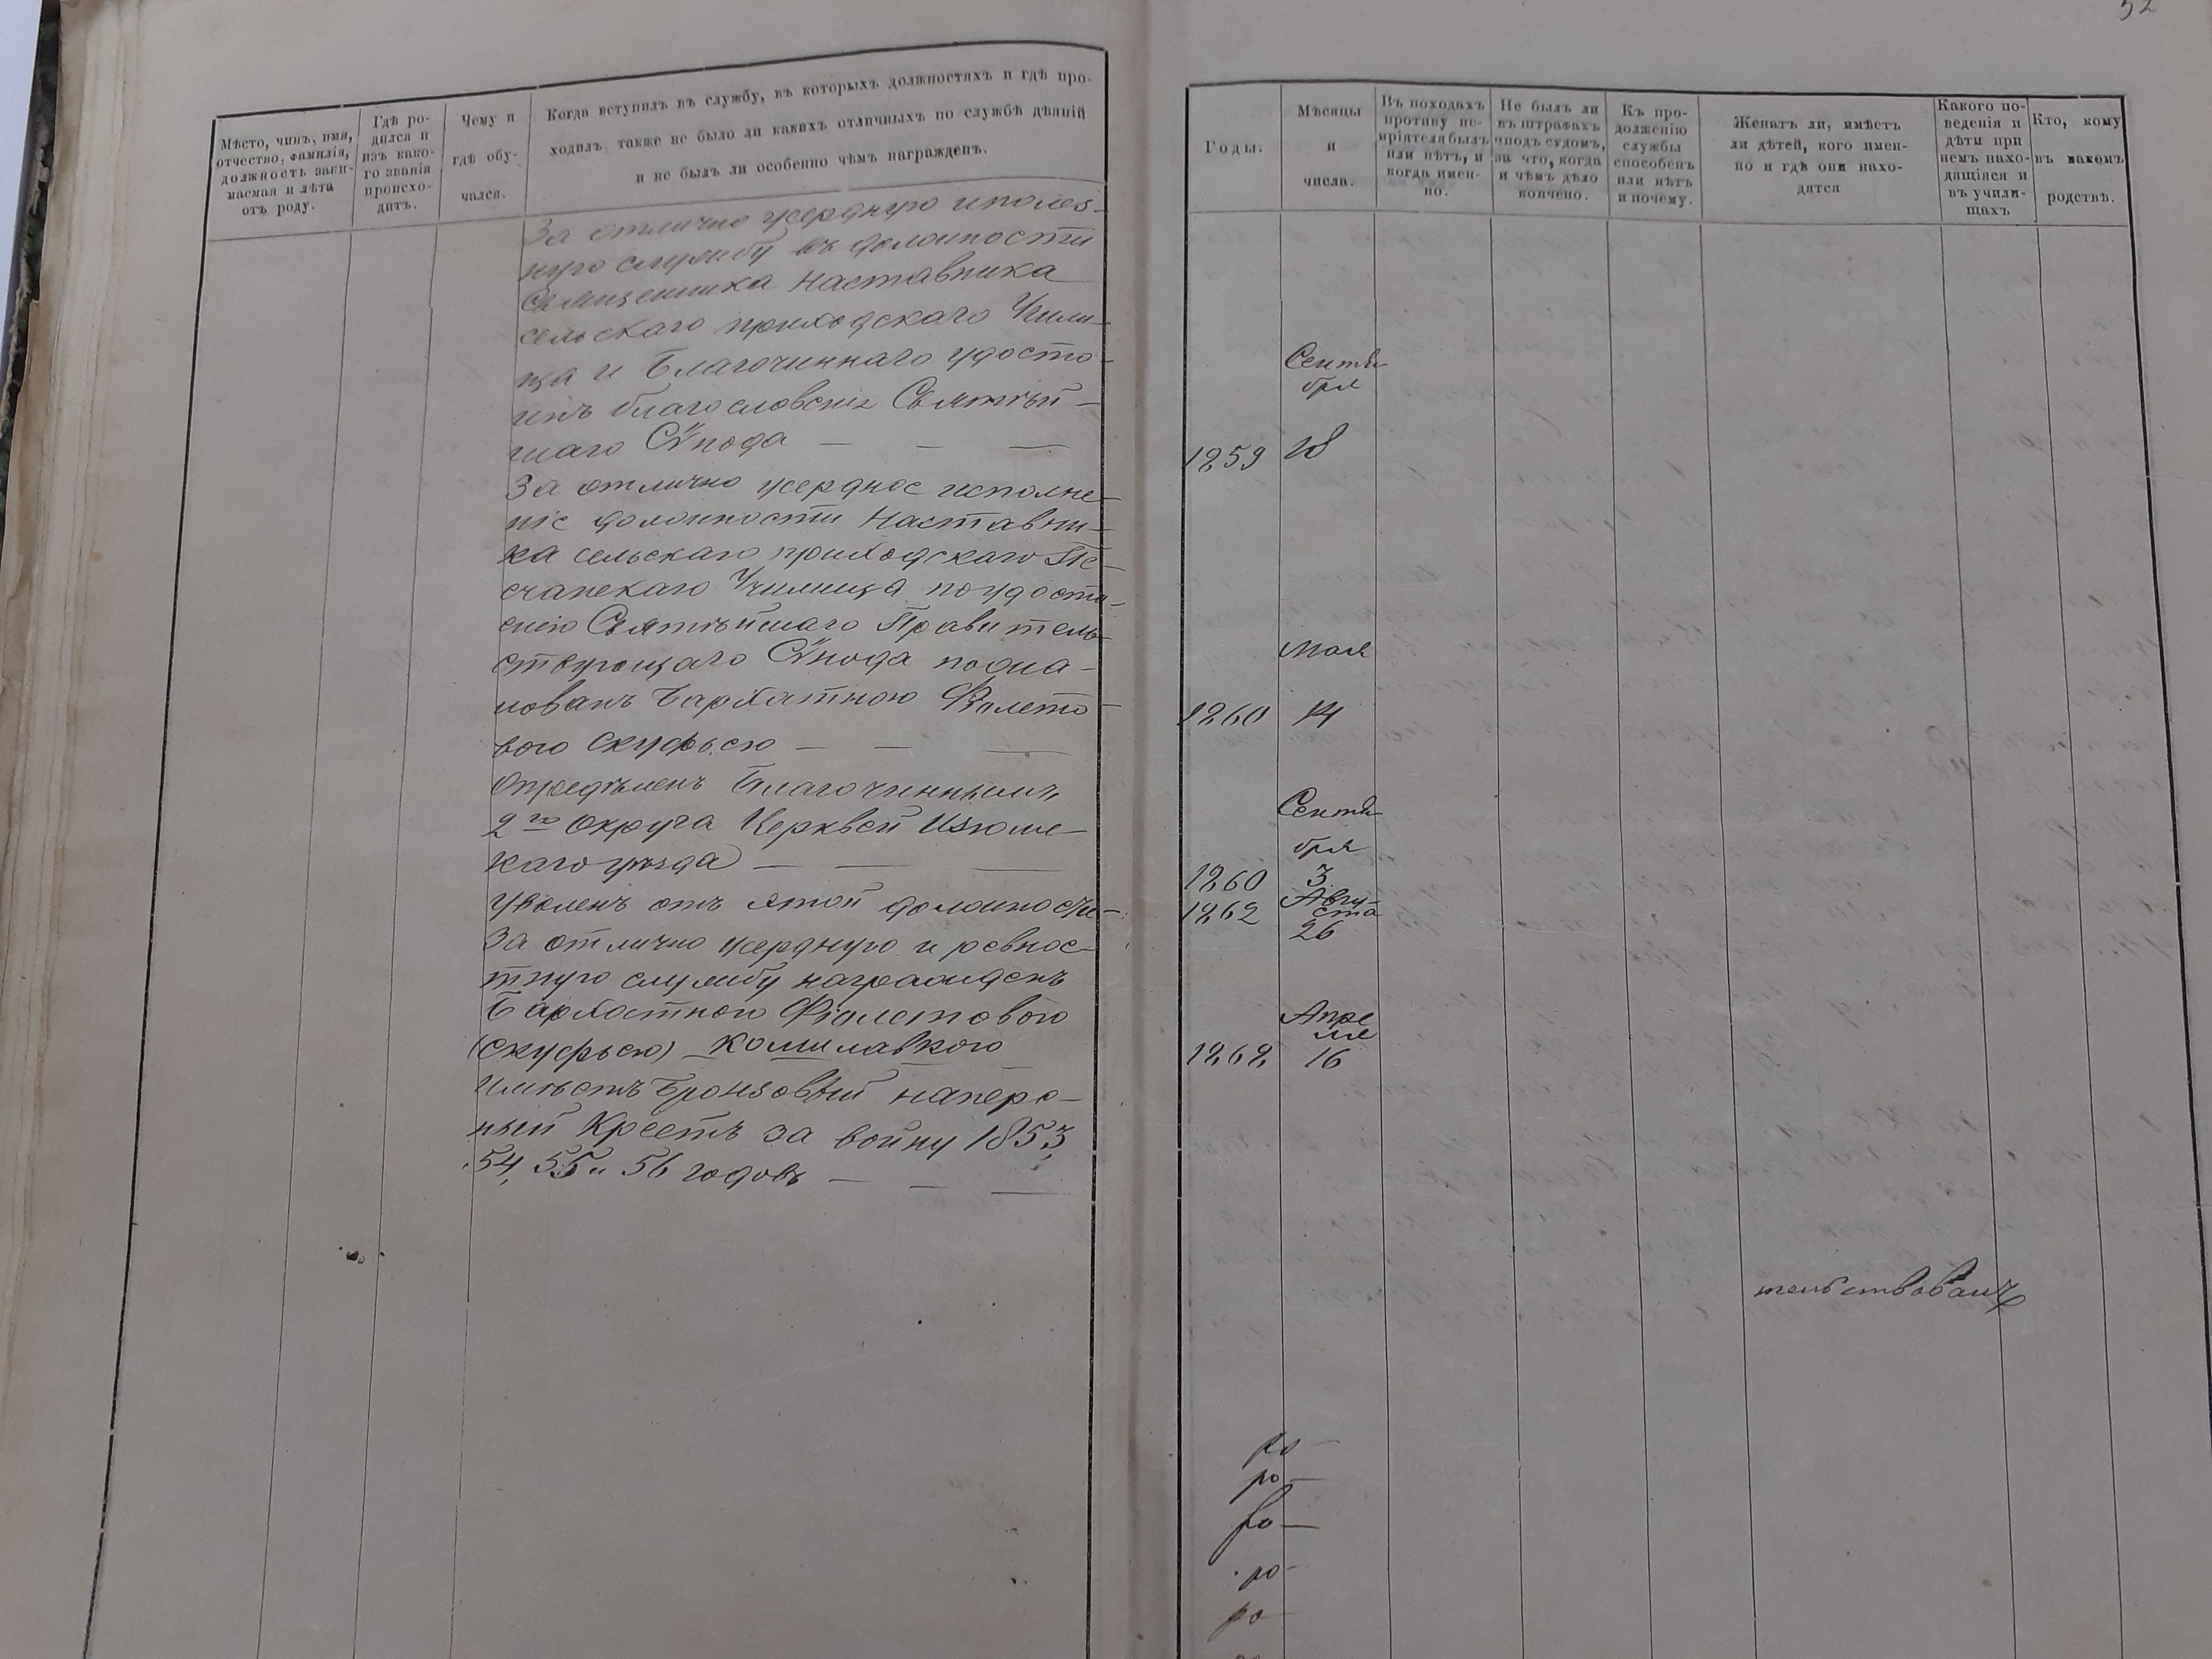 Мѣсто, чинъ, имя,
отчество, фамилія,
должность зани-
маемая и лѣта
отъ роду.
Гдѣ ро-
дился и
изъ како-
го званія
происхо-
дитъ.
Чему и
гдѣ обу-
чался.
Когда вступилъ въ службу, въ которыхъ должностяхъ и гдѣ про-
ходилъ также не было ли какихъ отличныхъ по службѣ дѣяній
и не былъ ли особенно чѣмъ награжденъ.
За отлично усердную и полез-
ную службу въ должности
Священника Наставника
сельскаго приходскаго Учили-
ща и Благочиннаго удосто-
инъ благословенія Святѣй-
шаго Сѵнода — — —
За отлично усердное исполне-
ніе должности Наставни-
ка сельскаго приходскаго Пе-
счанскаго Училища по удосто-
енію Святѣйшаго Правитель-
ствующаго Сѵнода пожа-
лованъ Бархатною Фіолето-
вою Скуфьею — — —
Опредѣленъ Благочиннымъ
2го Округа Церквей Изюмс-
каго уѣзда — — —
Уволенъ отъ этой должности
За отлично усердную и ревнос-
тную службу награжденъ
Бархатной Фіолетовою
(скуфьею) Камилавкою
Имѣетъ Бронзовый наперс-
ный Крестъ за войну 1853,
54, 55 и 56 годовъ — — —
52
Годы.
Мѣсяцы
и
числа.
Въ походахъ
противу не-
пріятеля былъ
или нѣтъ, и
когда имен-
но.
Не былъ ли
въ штрафахъ
подъ судомъ,
за что, когда
и чѣмъ дѣло
кончено.
Къ про-
долженію
службы
способенъ
или нѣтъ
и почему.
Женатъ ли, имѣетъ
ли дѣтей, кого имен-
но и гдѣ они нахо-
дятся
Какого по-
веденія и
дѣти при
немъ нахо-
дящіяся и
въ учили-
щахъ
Кто, кому
въ какомъ
родствѣ.
Сентя
бря
1859 18
Мая
1860 14
Сентя
бря
1860 3
Авгу-
1862 ста
26
Апре
ля
1868 16
тельствовалъ
ро —
ро —
ро —
ро -
ро